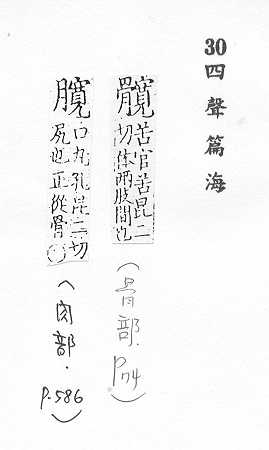 30四聲篇海
髖苦官苦昆二切体兩股間也
(骨部.P74)
臗口丸孔昆二切尻也正從骨〇
(肉部.P.586)